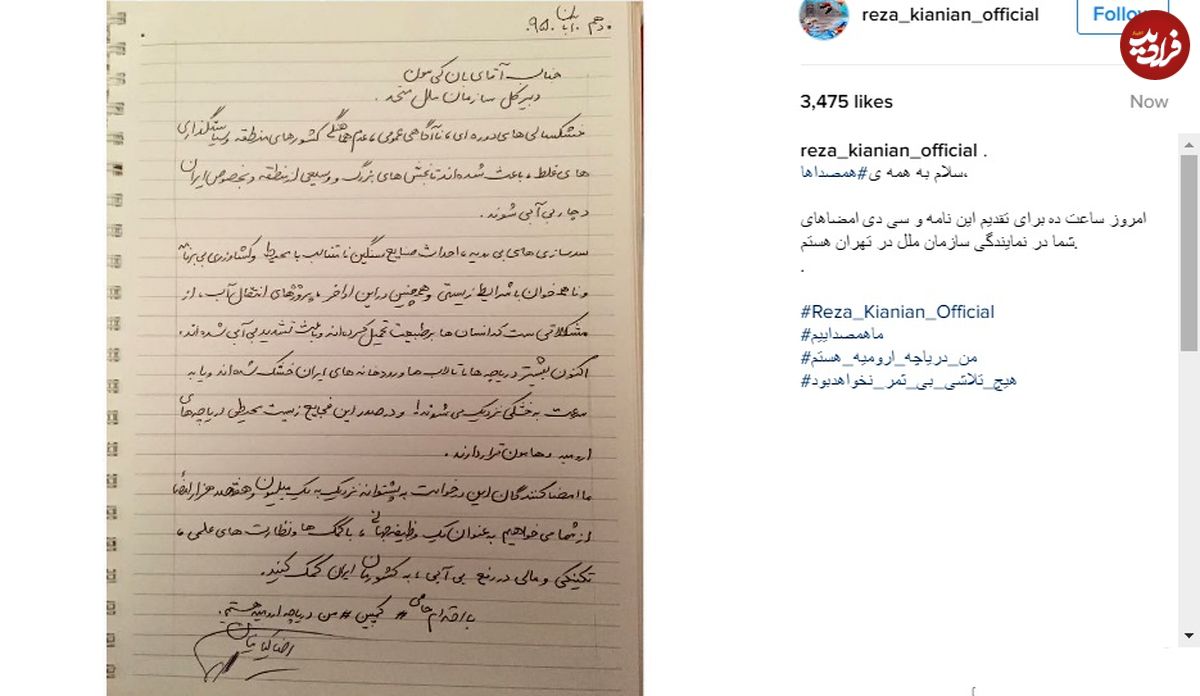 دهم. آبان. ۹۵.
جناب آقای بان کی مون
دبیر کل سازمان ملل متحد.
خشکسالی های دوره ای، ناآگاهی عمومی، عدم هماهنگی کشورهای منطقه و سیاستگذاری
های غلط، باعث شده اند تا بخش های بزرگ و وسیعی از منطقه و بخصوص ایران
دچار بی آبی شوند.
سدسازی های بی رویه، احداث صنایع سنگین نامتناسب با محیط و کشاورزی بی برنامه
و ناهمخوان با شرایط زیستی و همچنین در این اواخر، پروژهای انتقال آب، از
مشکلاتی ست که انسان ها بر طبیعت تحمیل کرده اند و باعث تشدید بی آبی شده اند.
اکنون بیشتر دریاچه ها، تالاب ها و رودخانه های ایران خشک شده اند و یا به
سرعت به خشکی نزدیک می شوند! و در صدر این فجایع زیست محیطی دریاچه های
ارومیه و هامون قرار دارند.
ما امضا کنندگان این درخواست به پشتوانه نزدیک به یک میلیون و هفتصد هزار امضا
از شما می خواهیم به عنوان یک وظیفه جهانی، با کمک ها و نظارت های علمی،
تکنیکی و مالی در رفع بی آبی، به کشورمان ایران کمک کنید.
با احترام حامی # کمپین # من دریاچه ارومیه هستم.
رضا کیانیان
reza_kianian_official
Follow
فرادید
3,475 likes
Now
reza_kianian_official .
سلام به همه ی#همصداها،
امروز ساعت ده برای تقدیم این نامه و سی دی امضاهای
شما در نمایندگی سازمان ملل در تهران هستم.
.
#Reza_Kianian_Official
#ماهمصداییم
#من_دریاچه_ارومیه_هستم
#هیچ_تلاشی_بی_ثمر_نخواهدبود